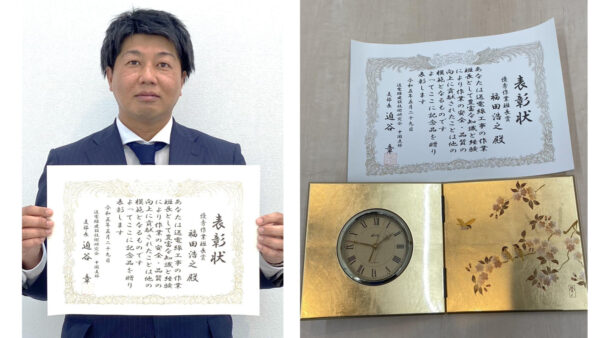 表彰状
優秀作業班長賞
福田浩之 殿
あなたは送電線工事の作業
班長として豊富な知識と経験
により作業の安全・品質の
向上に貢献されたことは他の
模範となるものです
よってここに記念品を贈り
表彰します
令和五年五月二十九日
送電線建設技術研究会 中国支部
支部長 迫谷 章
表彰状
優秀作業班長賞
福田浩之 殿
あなたは送電線工事の作業
班長として豊富な知識と経験
により作業の安全・品質の
向上に貢献されたことは他の
模範となるものです
よってここに記念品を贈り
表彰します
令和五年五月二十九日
送電線建設技術研究会 中国支部
支部長 迫谷 章